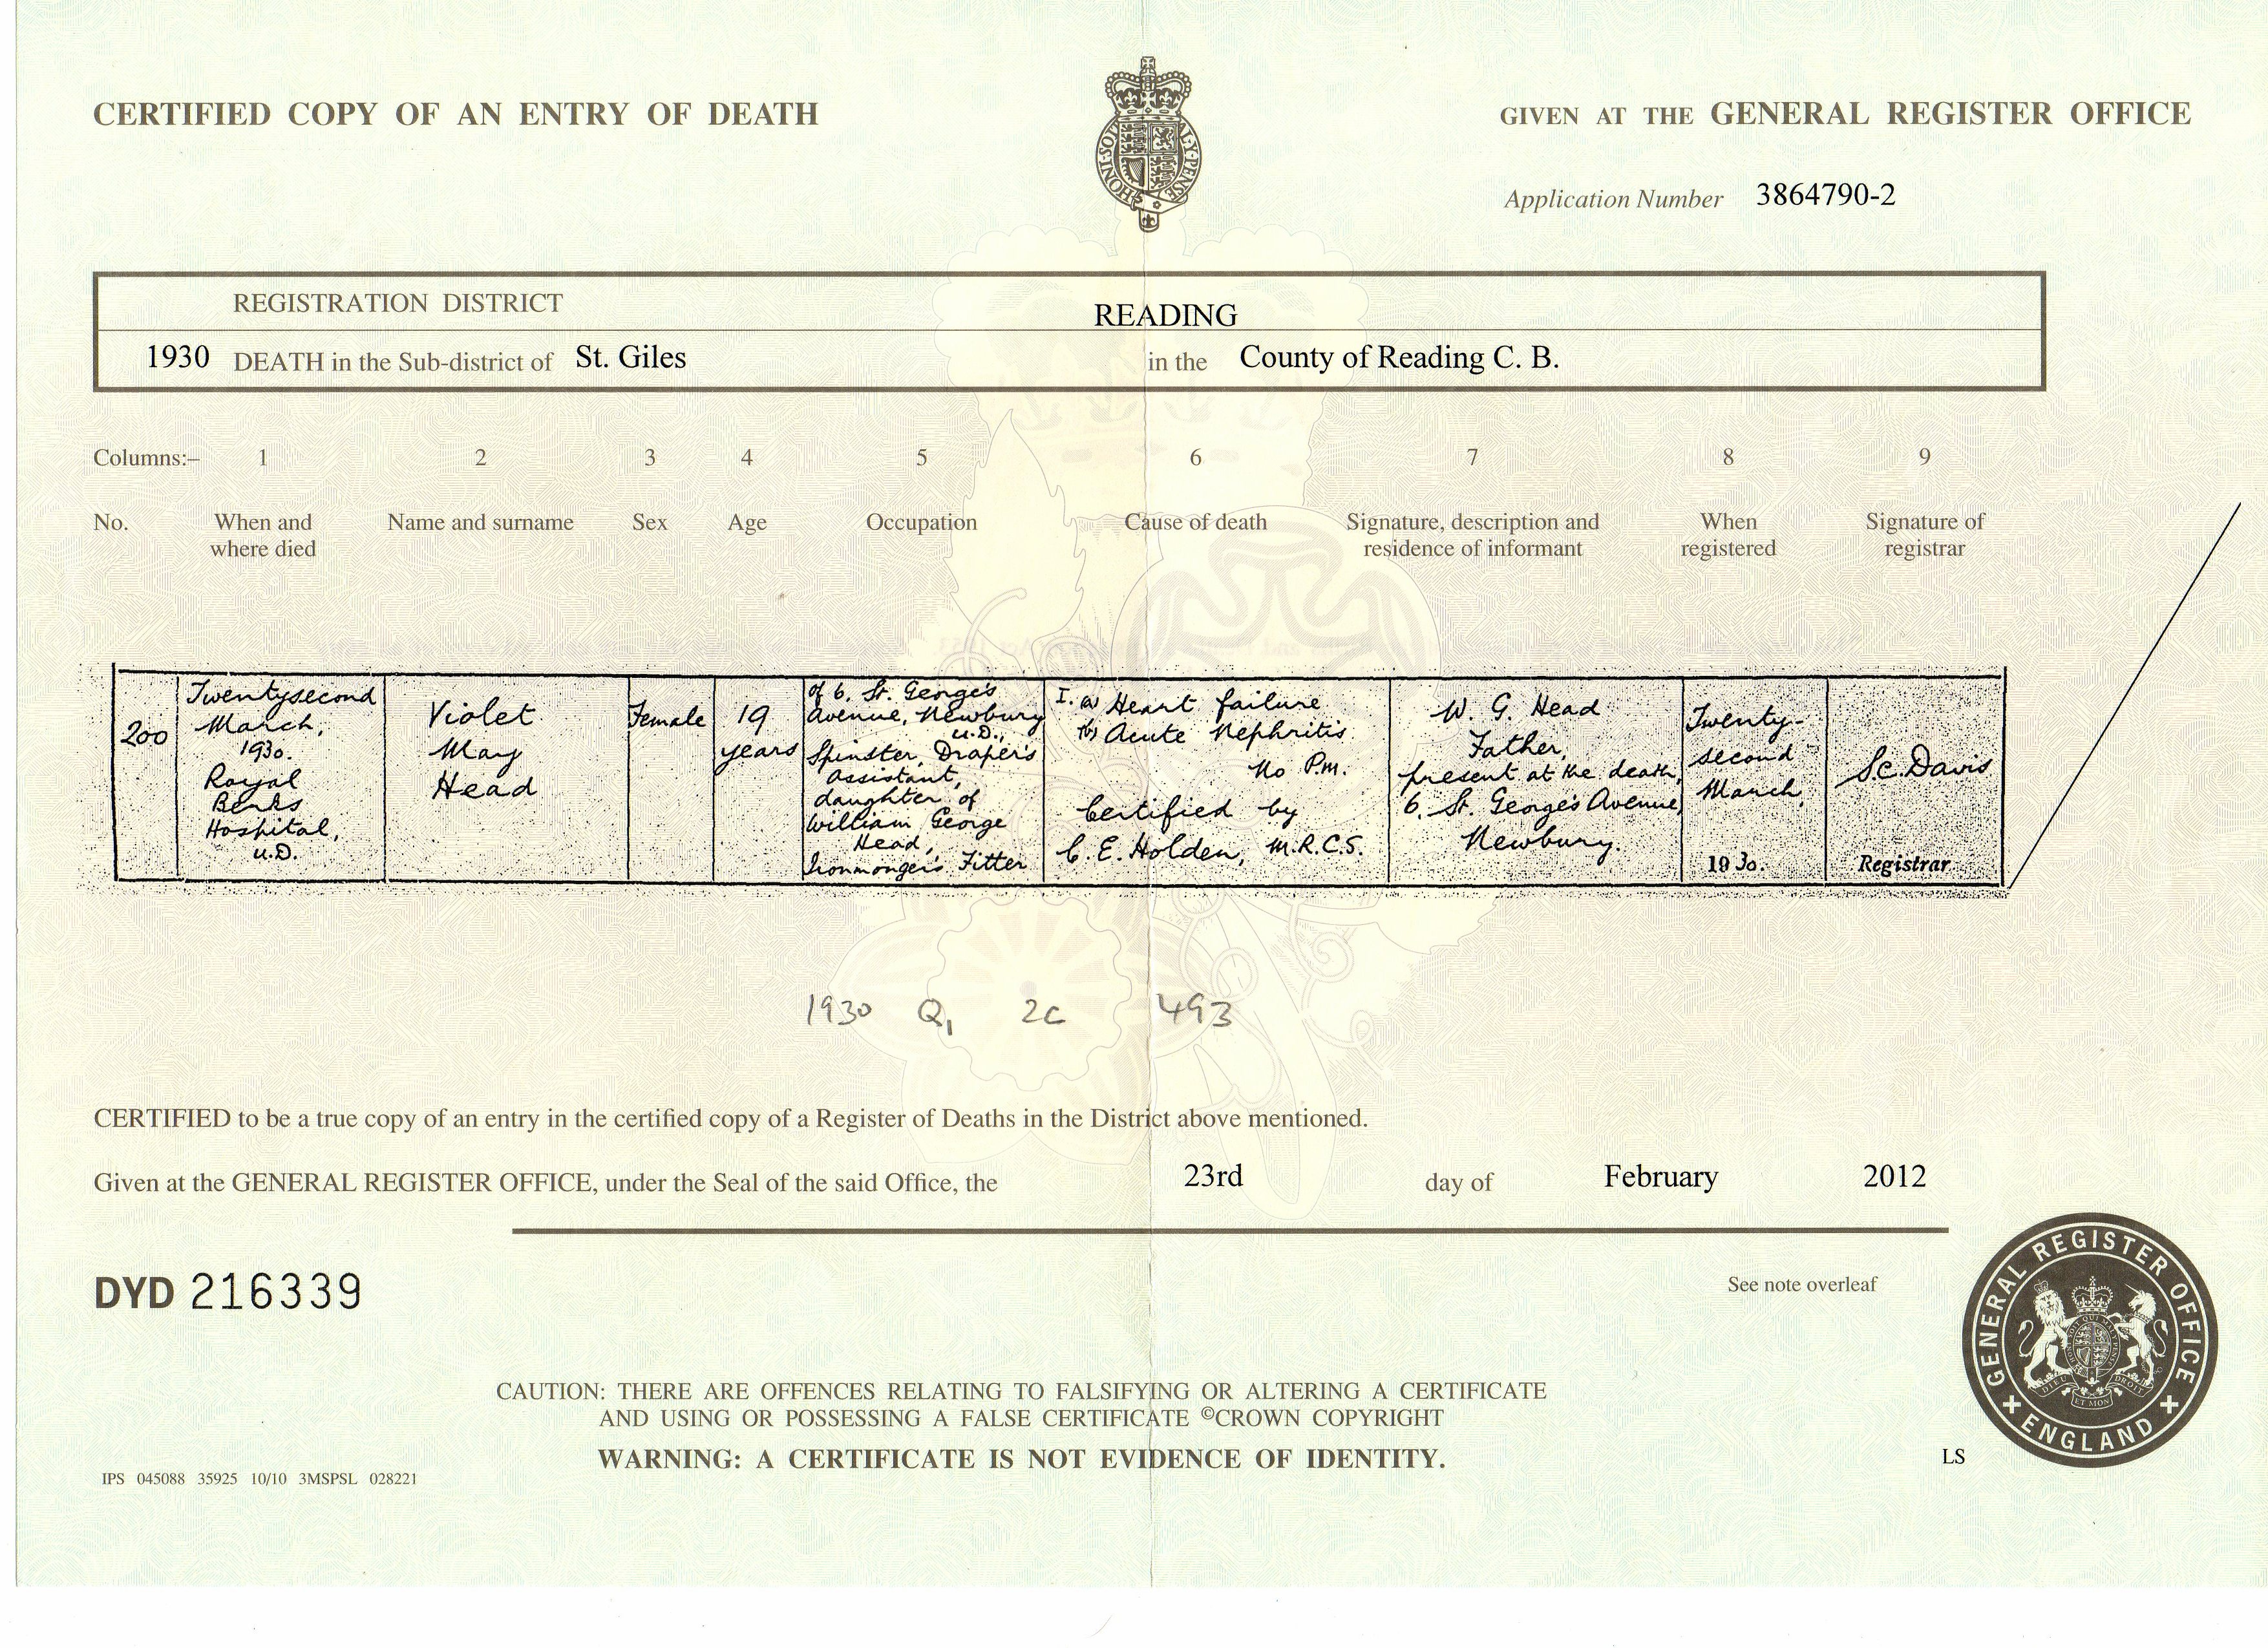 CERTIFIED COPY OF AN ENTRY OF DEATH
GIVEN AT THE GENERAL REGISTER OFFICE
HONI·SOIT AL·Y·PENSE
Application Number 3864790-2
REGISTRATION DISTRICT READING
1930 DEATH in the Sub-district of St. Giles in the County of Reading C. B.
Columns:– 1 2 3 4 5 6 7 8 9
No. When and where died Name and surname Sex Age Occupation Cause of death Signature, description and residence of informant When registered Signature of registrar
200
Twentysecond
March,
1930.
Royal
Berks
Hospital,
U.D.
Violet
May
Head
Female
19
years
of 6, St. George's
Avenue, Newbury
U.D.,
Spinster, Draper's
Assistant,
daughter of
William George
Head,
Ironmonger's Fitter
I. (a) Heart failure
(b) Acute Nephritis
No P.M.
Certified by
C. E. Holden, M.R.C.S.
W. G. Head
Father,
present at the death,
6, St. George's Avenue,
Newbury.
Twenty-
second
March,
1930.
S.C. Davis
Registrar
1930 Q1 2c 493
CERTIFIED to be a true copy of an entry in the certified copy of a Register of Deaths in the District above mentioned.
Given at the GENERAL REGISTER OFFICE, under the Seal of the said Office, the 23rd day of February 2012
DYD 216339
See note overleaf
CAUTION: THERE ARE OFFENCES RELATING TO FALSIFYING OR ALTERING A CERTIFICATE
AND USING OR POSSESSING A FALSE CERTIFICATE ©CROWN COPYRIGHT
WARNING: A CERTIFICATE IS NOT EVIDENCE OF IDENTITY.
IPS 045088 35925 10/10 3MSPSL 028221
LS
GENERAL REGISTER OFFICE
ENGLAND
DIEU ET MON DROIT